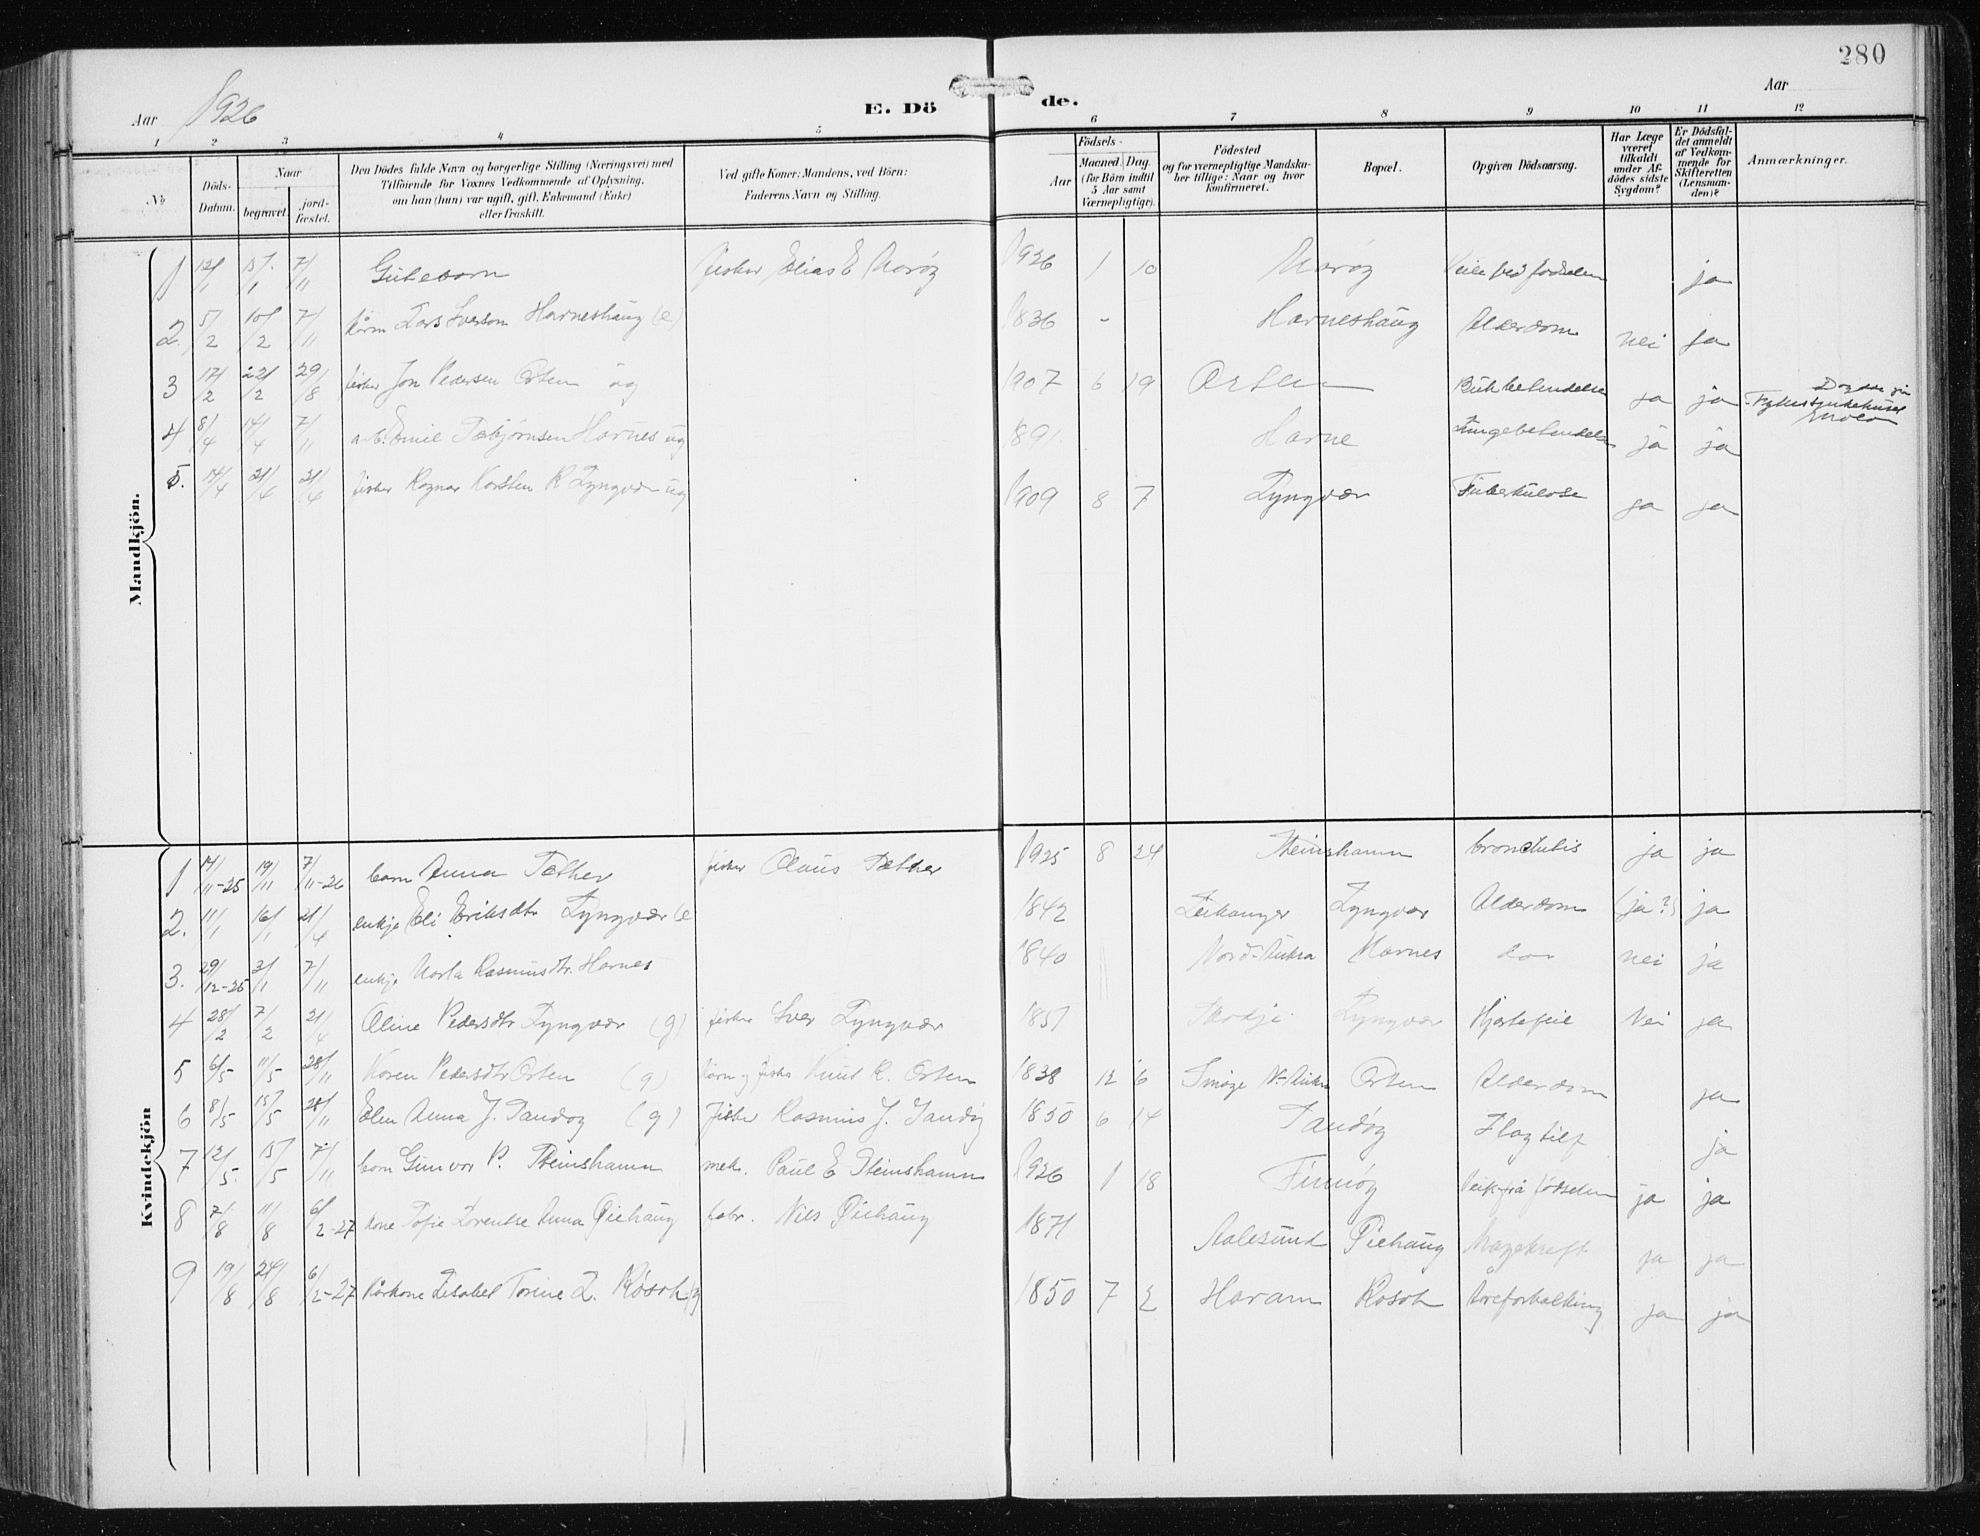 280
Aar 1926
E. Dö de.
Aar
1 2 3 4 5 6 7 8 9 10 11 12
No.
Döds-Datum.
Naar
begravet.
jord-fæstet.
Den Dödes fulde Navn og borgerlige Stilling (Næringsvei) med
Tilföiende for Voxnes Vedkommende af Oplysning,
om han (hun) var ugift, gift, Enkemand (Enke)
eller fraskilt.
Ved gifte Koner: Mandens, ved Börn:
Faderens Navn og Stilling.
Födsels-
Aar
Maaned. Dag.
(for Börn indtil
5 Aar samt
Værnepligtige).
Födested
og for værnepligtige Mandska-
ber tillige: Naar og hvor
konfirmeret.
Bopæl.
Opgiven Dödsaarsag.
Har Læge
været
tilkaldt
under Af-
dödes sidste
Sygdom?
Er Dödsfal-
det anmeldt
af Vedkom-
mende for
Skifteretten
(Lensman-
den)?
Anmærkninger.
Mandkjön.
1 12/1 15/1 7/11 Gutebarn fisker Elias E 1926 1 10 ved fødselen ja
2. 5/2 10/2 7/11 Lars Harneshaug (e) 1836 - Harneshaug Alderdom nei ja
3 17/2 22/2 29/8 fisker Jon Pedersen Orten ug 1907 6 19 Orten Bukbetendelse ja ja Fylkessjukehuset
4 8/4 14/4 7/11 arb. Emil Harnes ug 1891 Harne Lungebetendelse ja ja
5. 14/4 21/4 21/4 fisker Ragnar Karsten R Lyngvær ug 1909 8 7 Lyngvær Tuberkulose ja ja
Kvindekjön
1 14/11-25 19/11 7/11-26 barn Anna Sæther fisker Olaus Sæther 1925 8 24 Steinshamn bronchitis ja ja
2. 11/1 16/1 21/4 enkje Eli Eriksdtr Lyngvær (e 1842 Leikanger Lyngvær Alderdom (ja?) ja
3. 29/12-25 3/1 7/11 enkje Marta Rasmusdtr. Harnes 1840 Nord-Aukra Harnes do nei ja
4 28/2 7/2 21/4 Oline Pedersdtr Lyngvær (g) fisker Iver Lyngvær 1857 Lyngvær Hjertefeil Nei ja
5 6/5 11/5 28/11 Karen Pedersdtr Orten (g) fisker Knut R. Orten 1838 12 6 Smøge N-Aukra Orten Alderdom ja
6 8/5 15/5 28/11 Elen Anna J. Sandøy (g) Fisker Rasmus J. Sandøy 1850 6 14 Sandøy Slagtilf ja
7 12/5. 15/5 7/11 barn Gunvor P. Steinshamn mek. Paul E Steinshamn 1926 1 18 Finnøy Veik frå fødselen ja ja
8 7/8 11/8 6/2-27 kone Sofie Lorentse Anna fabr. Nils 1871 Aalesund Magekreft ja ja
9 19/8 24/8 6/2-27 Kårkone Lisabet Torine L. Røsok (g 1850 7 2 Haram Røsok Åreforkalking ja ja